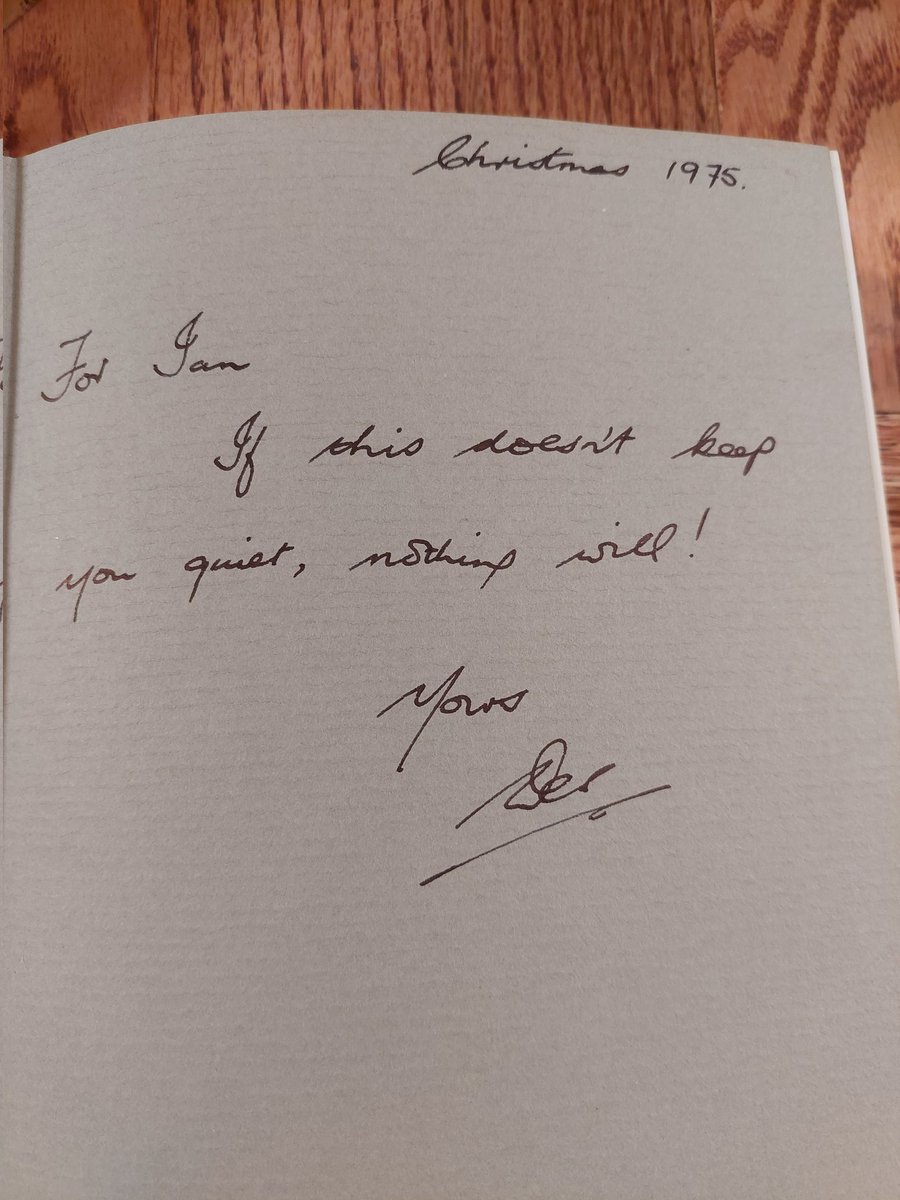 Christmas 1975.
For Ian
If this doesn't keep
you quiet, nothing will!
Yours
Des